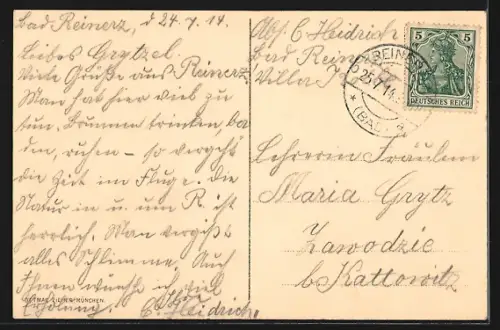 Bad Reinerz, d 24.7.14.
Liebes Grytzel.
Viele Grüße aus Reinerz.
Man hat hier viel zu
tun. Brunnen trinken, ba-
den, ruhen – so vergeht
die Zeit im Fluge. Die
Natur in u. um R. ist
herrlich. Man vergißt
alles Schlimme. Auch
Ihnen wünsche ich viel
Erholung.
C. Heidrich
MÜNCHEN
Abs. C Heidrich
Bad Reinerz
Villa
REINERZ
25.7.14
(BAD)
5 5
DEUTSCHES REICH
Lehrerin Fräulein
Maria Grytz
Zawodzie
b. Kattowitz